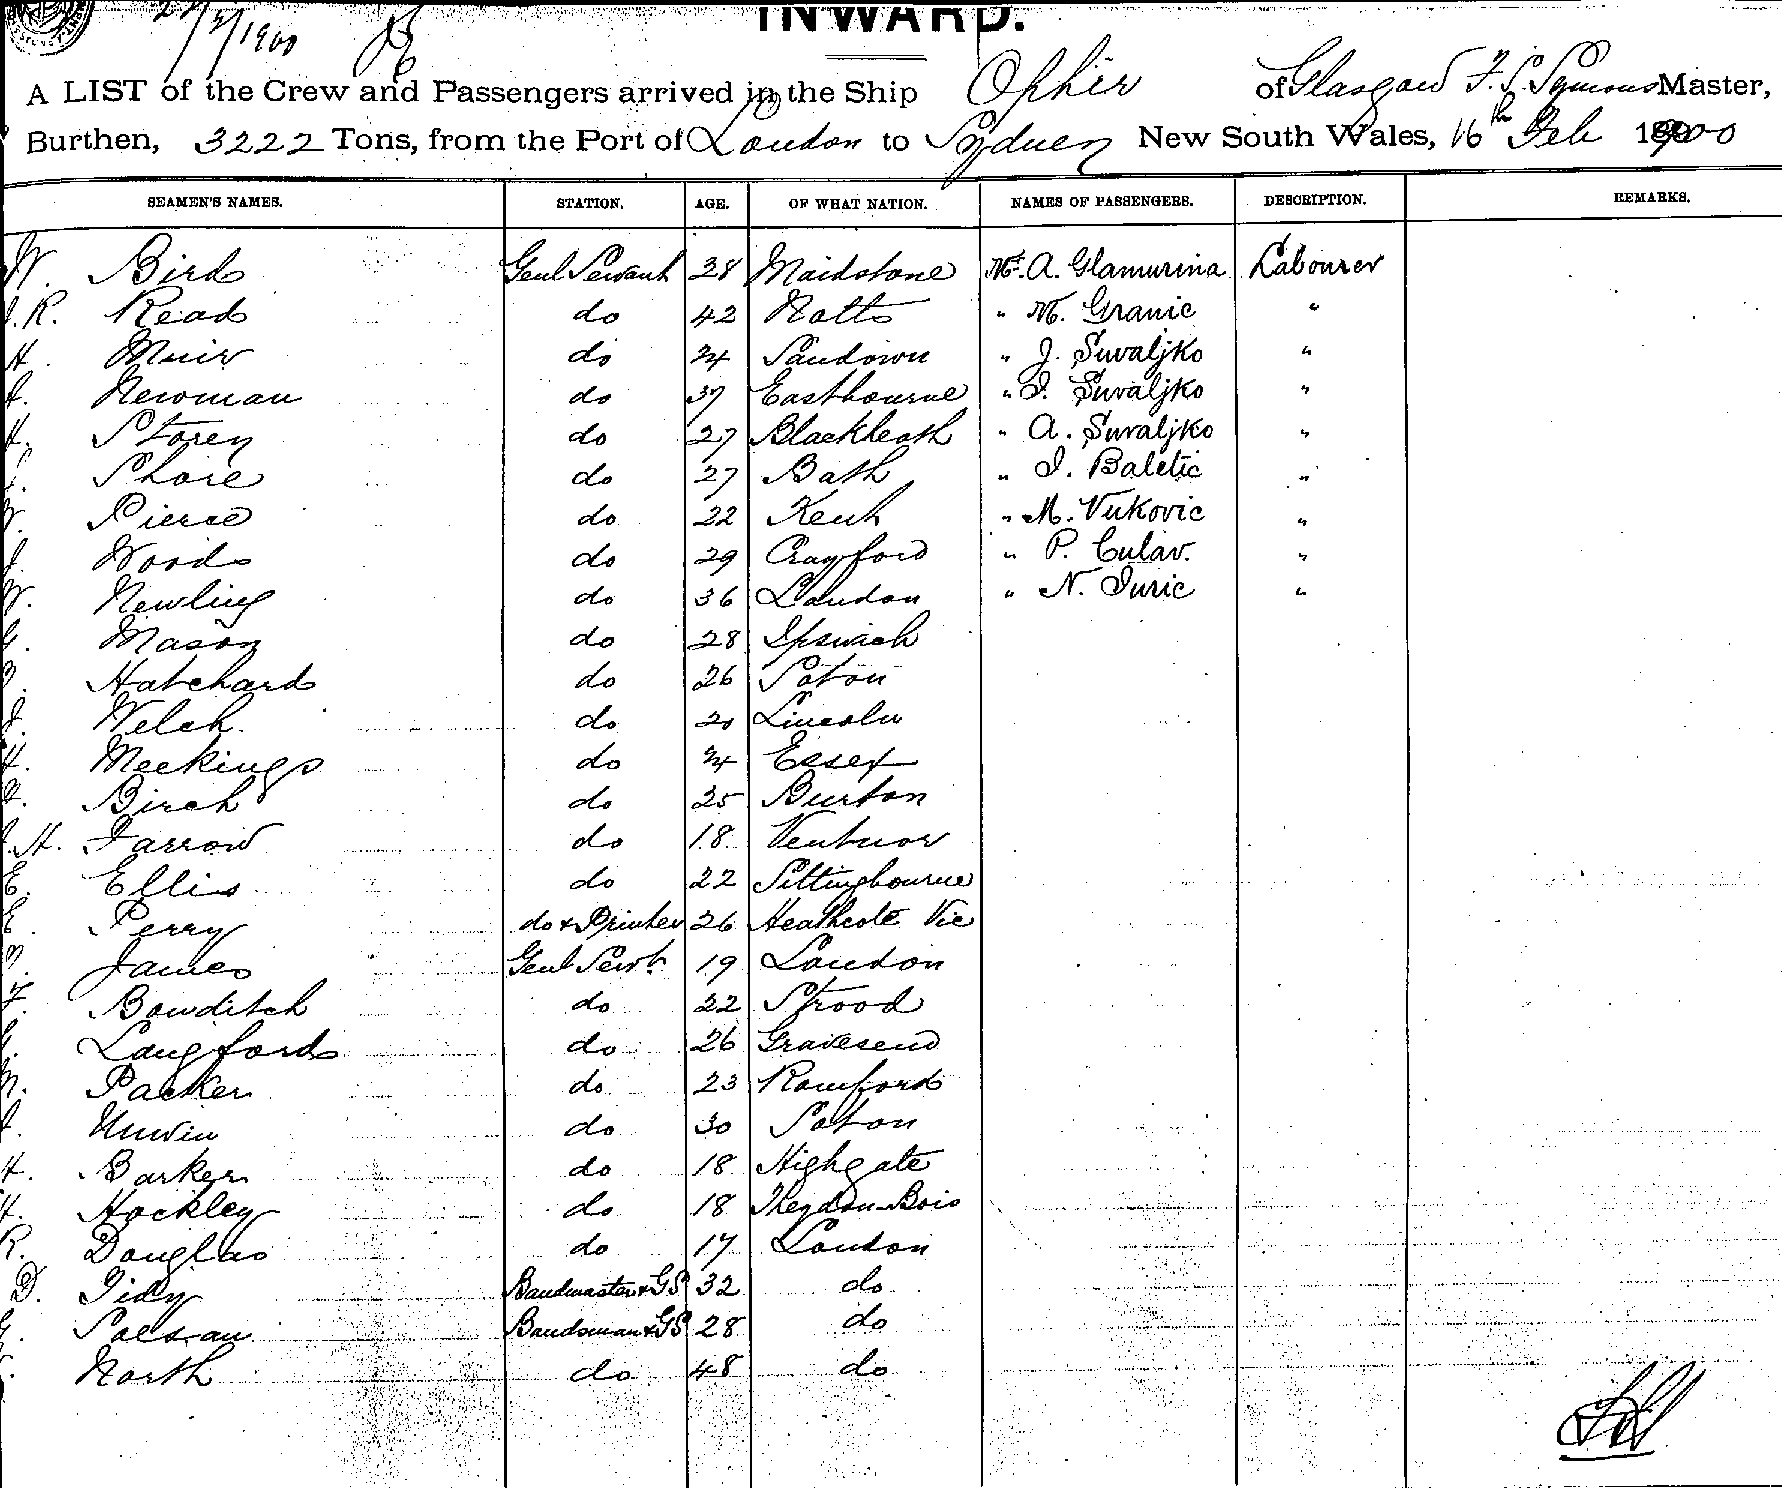 2/1900
INWARD.
A LIST of the Crew and Passengers arrived in the Ship Ophir of Glasgow F. S. Symons Master,
Burthen, 3222 Tons, from the Port of London to Sydney New South Wales, 16th Feb 1900
SEAMEN'S NAMES. STATION. AGE. OF WHAT NATION. NAMES OF PASSENGERS. DESCRIPTION. REMARKS.
W. Bird Genl Servant 28 Maidstone Mr. A. Glamurina Labourer
R. Read do 42 Notts " M. Granic "
H. Muir do 24 Sandown " J. Suvaljko "
Newman do 37 Eastbourne " I. Suvaljko "
H. Storey do 27 Blackheath " A. Suvaljko "
Shore do 27 Bath " I. Baletic "
W. Pierce do 22 Kent " M. Vukovic "
J. Woods do 29 Crayford " P. Culav. "
W. Newling do 36 London " N. Juric "
G. Mason do 28 Ipswich
Hatchard do 26 Soton
J. Welch do 20 Lincoln
H. Meekings do 24 Essex
Birch do 25 Burton
H. Farrow do 18 Ventnor
E. Ellis do 22 Sittingbourne
E. Perry do & Printer 26 Heathcote Vic
James Genl Servt 19 London
F. Bowditch do 22 Strood
Langford do 26 Gravesend
Packer do 23 Romford
Unwin do 30 Soton
H. Barker do 18 Highgate
H. Hockley do 18 Theydon Bois
R. Douglas do 17 London
D. Tidy Bandmaster & GS 32 do
Bandsman & GS 28 do
North do 48 do